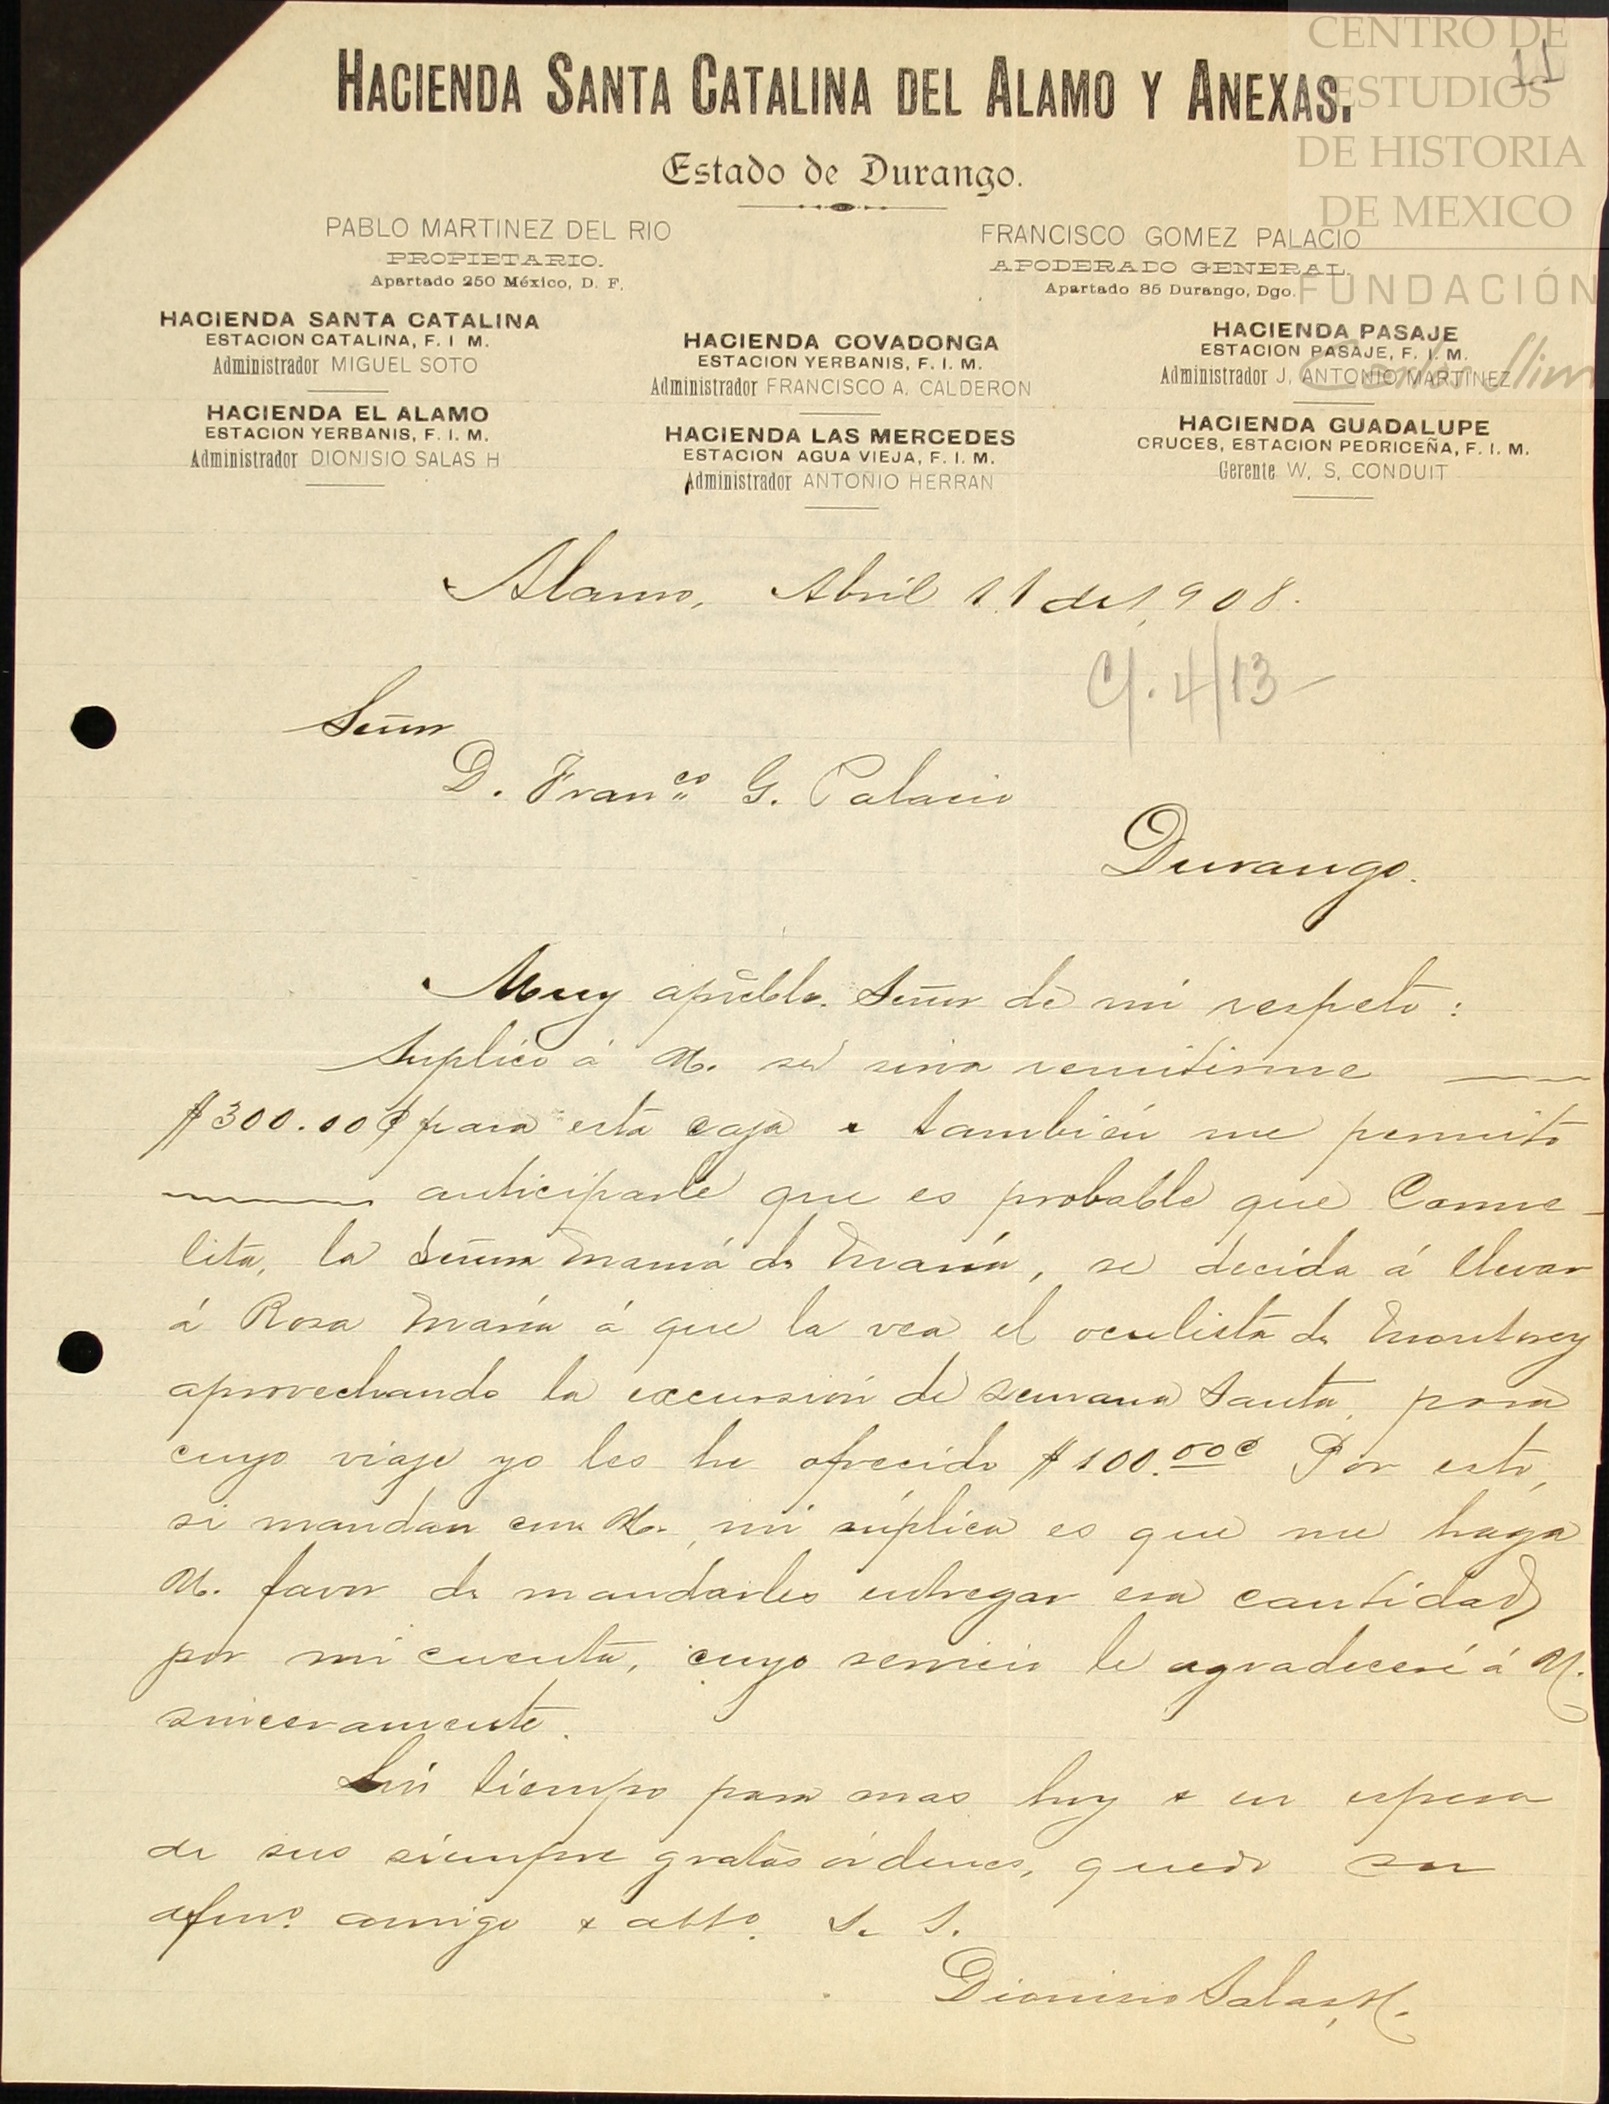 CENTRO DE
ESTUDIOS
DE HISTORIA
DE MEXICO
FUNDACIÓN
Carlos Slim
11
HACIENDA SANTA CATALINA DEL ALAMO Y ANEXAS.
Estado de Durango.
PABLO MARTINEZ DEL RIO
PROPIETARIO.
Apartado 250 México, D. F.
FRANCISCO GOMEZ PALACIO
APODERADO GENERAL.
Apartado 85 Durango, Dgo.
HACIENDA SANTA CATALINA
ESTACION CATALINA, F. I M.
Administrador MIGUEL SOTO
HACIENDA EL ALAMO
ESTACION YERBANIS, F. I. M.
Administrador DIONISIO SALAS H
HACIENDA COVADONGA
ESTACION YERBANIS, F. I. M.
Administrador FRANCISCO A. CALDERON
HACIENDA LAS MERCEDES
ESTACION AGUA VIEJA, F. I. M.
Administrador ANTONIO HERRAN
HACIENDA PASAJE
ESTACION PASAJE, F. I. M.
Administrador J. ANTONIO MARTINEZ
HACIENDA GUADALUPE
CRUCES, ESTACION PEDRICEÑA, F. I. M.
Gerente W. S. CONDUIT
Alamo, Abril 11 de 1,908.
C/. 4/13
Señor
D. Franco G. Palacio
Durango.
Muy apreble. Señor de mi respeto:
Suplico á U. se sirva remitirme
$300.00¢ para esta caja & también me permito
anticiparle que es probable que Carme-
lita, la Señora Mamá de María, se decida á llevar
á Rosa María á que la vea el oculista de Monterey
aprovechando la excursión de Semana Santa, para
cuyo viaje yo les he ofrecido $100.00¢ Por esto,
si mandan con U., mi súplica es que me haga
U. favor de mandarles entregar esa cantidad
por mi cuenta, cuyo servicio le agradeceré á U.
sinceramente.
Sin tiempo para mas hoy & en espera
de sus siempre gratas órdenes, quedo su
afmo. amigo & atto. S. S.
Dionisio Salas, H.